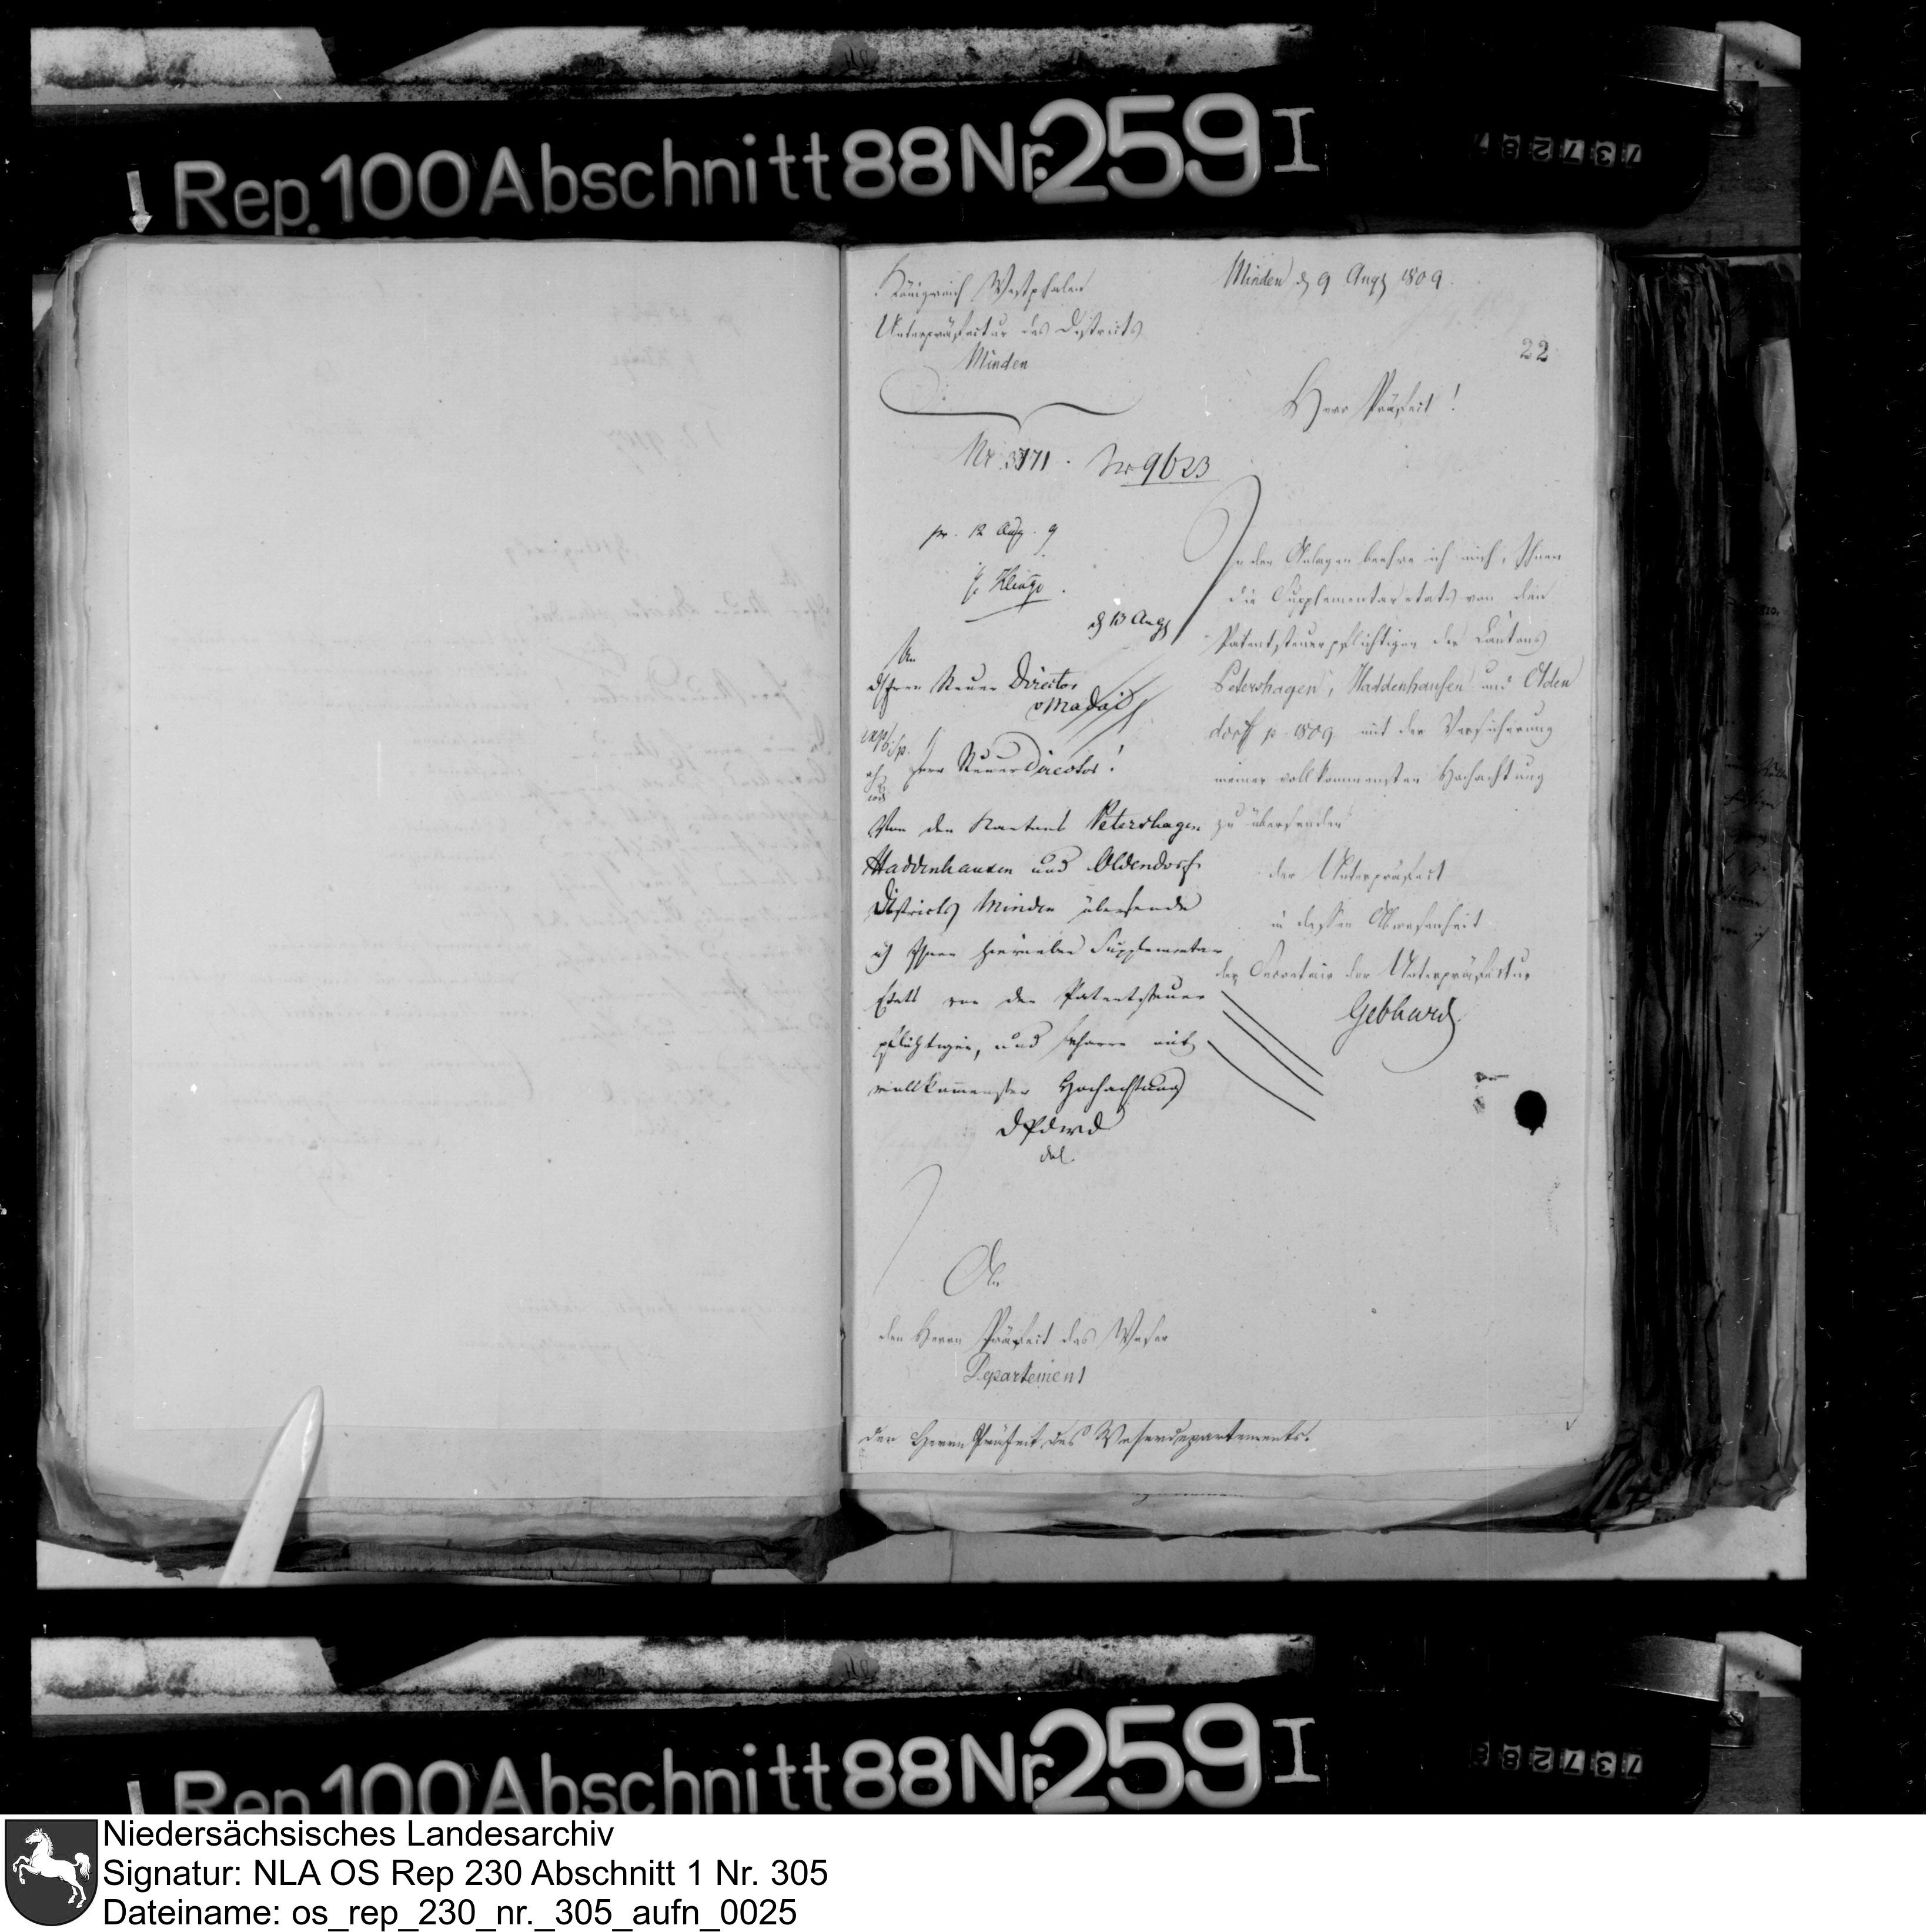 Rep. 100 Abschnitt 88 Nr. 259 I
Königreich Westphalen
Unterpräfectur des Districts
Minden
Minden d 9 Augs 1809.
22
Herr Präfect!
Nr. 3171. Nr 9623
pr. 12 Aug. 9
Klinge.
d 13 Augs
An
d Herrn Steuer Director
v Madai
Herr Steuer Director!
Von den Kantons Petershagen
Haddenhausen und Oldendorf
Districts Minden übersende
ich Ihnen hierneben Supplementar
Etats von den Patentsteuer
pflichtigen, und beharre mit
vollkommenster Hochachtung
DPdWD
In den Anlagen beehre ich mich, Ihnen
die Supplementaretats von den
Patentsteuerpflichtigen der Cantons
Petershagen, Haddenhausen und Olden
dorff p 1809 mit der Versicherung
meiner vollkommensten Hochachtung
zu übersenden
der Unterpräfect
in dessen Abwesenheit
der Secretair der Unterpräfectur
Gebhard
An
den Herrn Präfect des Weser
Departement
den Herrn Präfect des Weserdepartements.
Rep. 100 Abschnitt 88 Nr. 259 I
Niedersächsisches Landesarchiv
Signatur: NLA OS Rep 230 Abschnitt 1 Nr. 305
Dateiname: os_rep_230_nr._305_aufn_0025